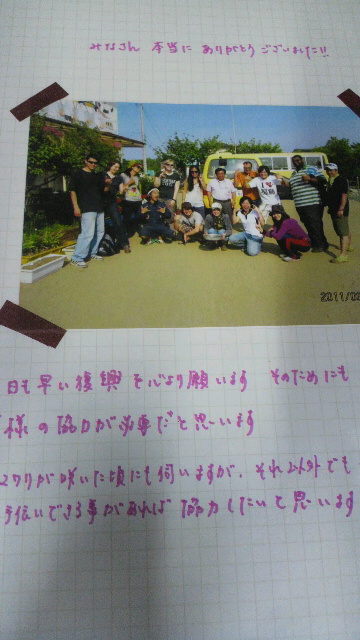 みなさん 本当に ありがとうございました!!
2011/0
日も早い復興を心より願います そのためにも
様の協力が必要だと思います
ワリが咲いた頃にも伺いますが、それ以外でも
伝いできる事があれば 協力したいと思います